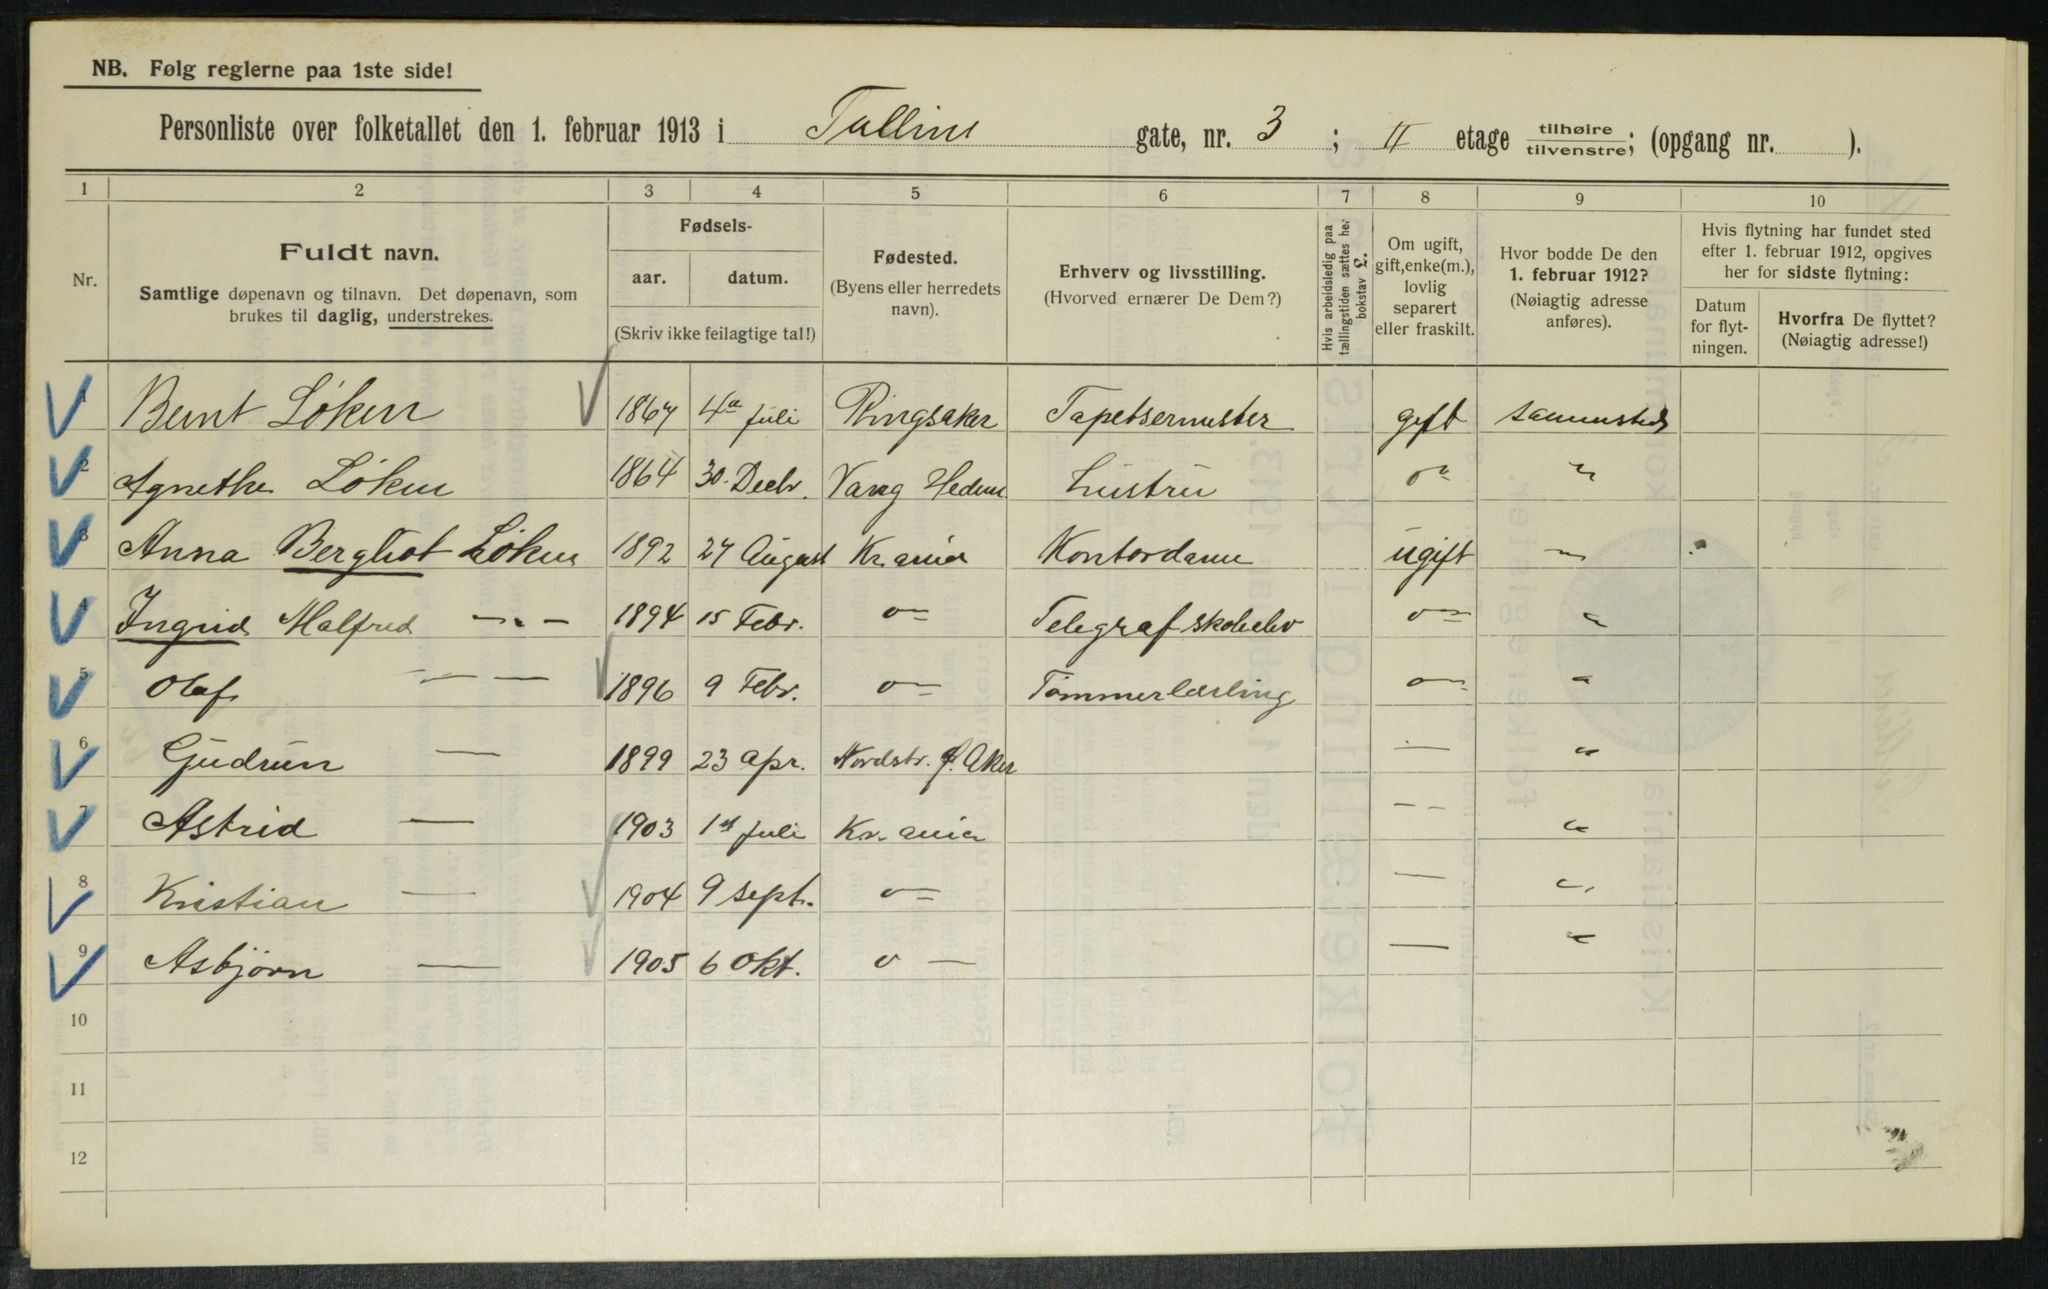 NB. Følg reglerne paa 1ste side!
Personliste over folketallet den 1. februar 1913 i Tullins gate, nr. 3 ; II etage tilhøire tilvenstre; (opgang nr. ).
1 2 3 4 5 6 7 8 9 10
Nr.
Fuldt navn.
Samtlige døpenavn og tilnavn. Det døpenavn, som
brukes til daglig, understrekes.
Fødsels-
aar. datum.
(Skriv ikke feilagtige tal!)
Fødested.
(Byens eller herredets
navn).
Erhverv og livsstilling.
(Hvorved ernærer De Dem?)
Hvis arbeidsledig paa
tællingstiden sættes her
bokstav L.
Om ugift,
gift, enke(m.),
lovlig
separert
eller fraskilt.
Hvor bodde De den
1. februar 1912?
(Nøiagtig adresse
anføres).
Hvis flytning har fundet sted
efter 1. februar 1912, opgives
her for sidste flytning:
Datum
for flyt-
ningen.
Hvorfra De flyttet?
(Nøiagtig adresse!)
1 Bernt Løken 1867 4de Juli Ringsaker Tapetsermester gift sammesteds
2 Agnethe Løken 1864 30. Decbr. Vang Hedem Hustru " "
3 Anna Bergliot Løken 1892 27 August Kr.ania Kontordame ugift "
4 Ingrid Malfred — " — 1894 15 Febr. o— Telegrafskoleelev o— "
5 Olaf — — — 1896 9 Febr. o— Tømmerlærling o— "
6 Gudrun — 1899 23 apr. Nordstr. Aker — "
7 Astrid — 1903 1st Juli Kr.ania — — "
8 Kristian — 1904 9 sept. o— — "
9 Asbjørn — 1905 6 Okt. o — — "
10
11
12